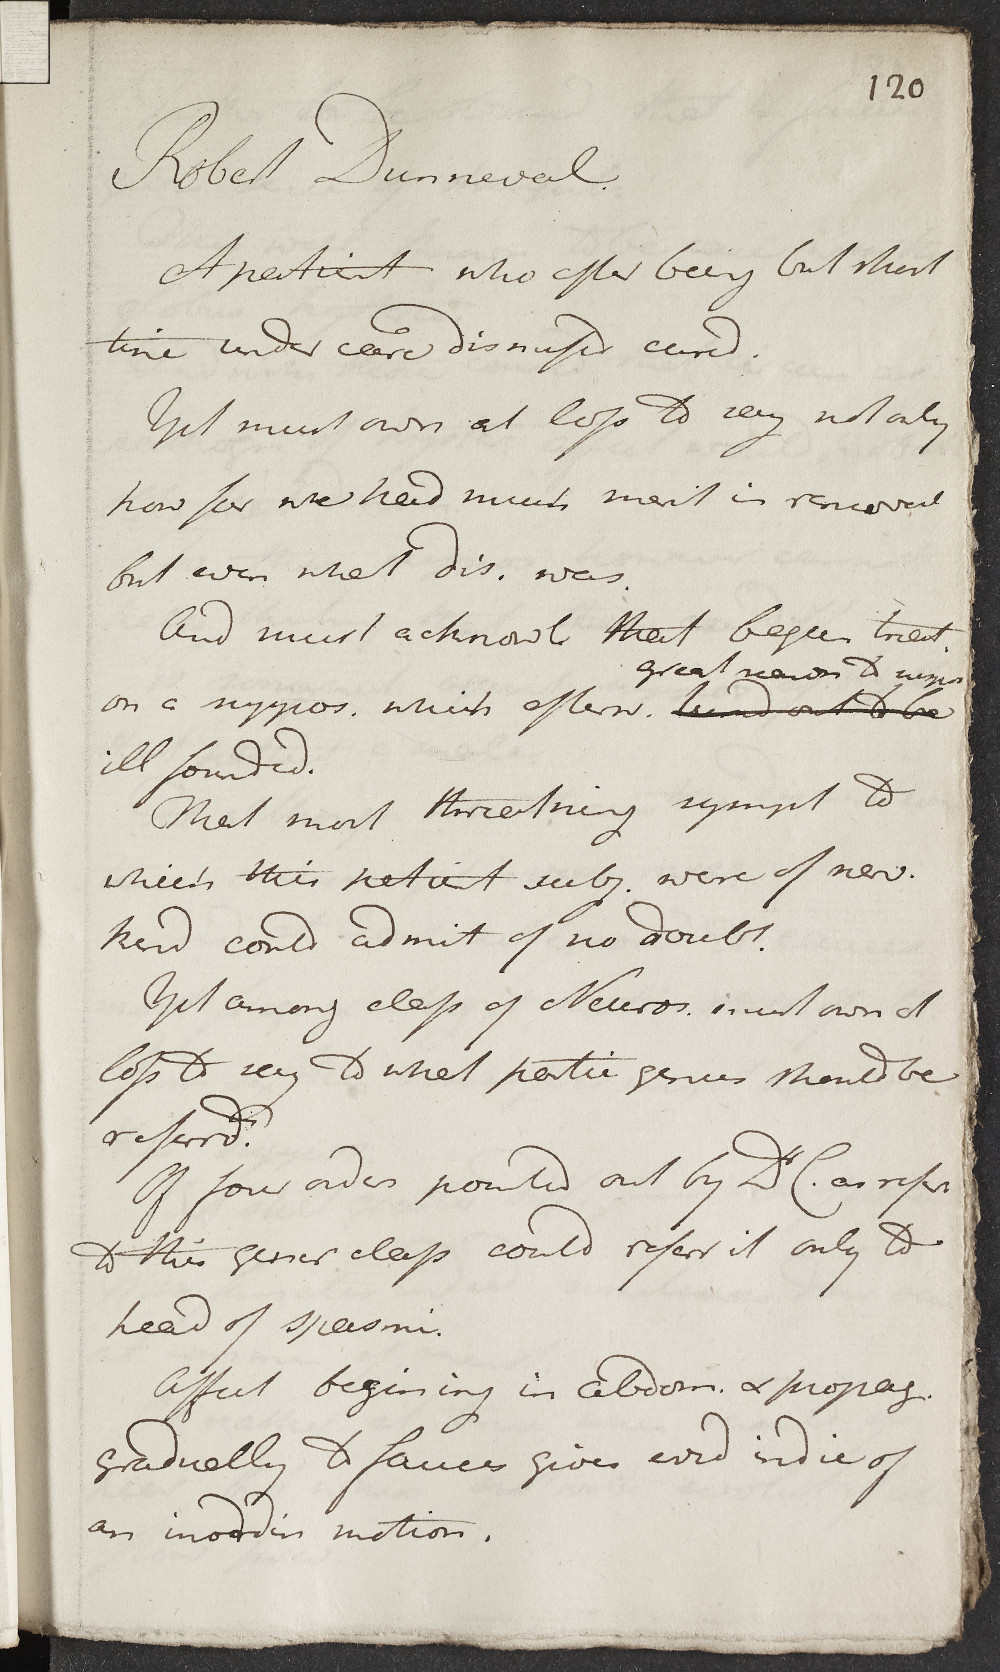 120
Robert Dunneval.
A patient who after being but short
time under care dismissd cured.
Yet must own at loss to say not only
how far we had much merit in removal
but even what dis. was.
And must acknowl that began treat.
great reason to
on a suppos. which afterw. turnd out to be
ill founded.
That most threatning sympt to
which this patient subj. were of nerv.
kend could admit of no doubt.
Yet among class of Neuros. must own at
loss to say to what partic genus should be
referrd.
Of four orders pointed out by Dr C. as refer
to this gener class could referr it only to
head of spasmi.
Affect begining in abdom. & propag.
gradually to fauces gives evid indic of
an inordin motion.